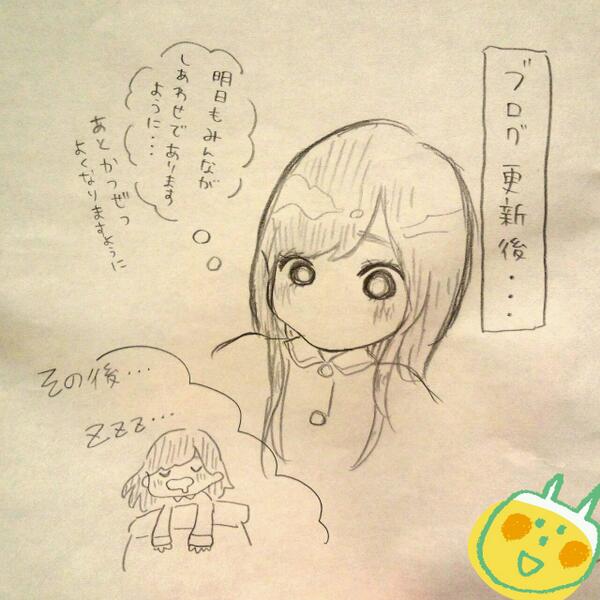 ブログ更新後・・・
明日もみんなが
しあわせであります
ように・・・
あとかつぜつ
よくなりますように
その後・・・
zzz・・・